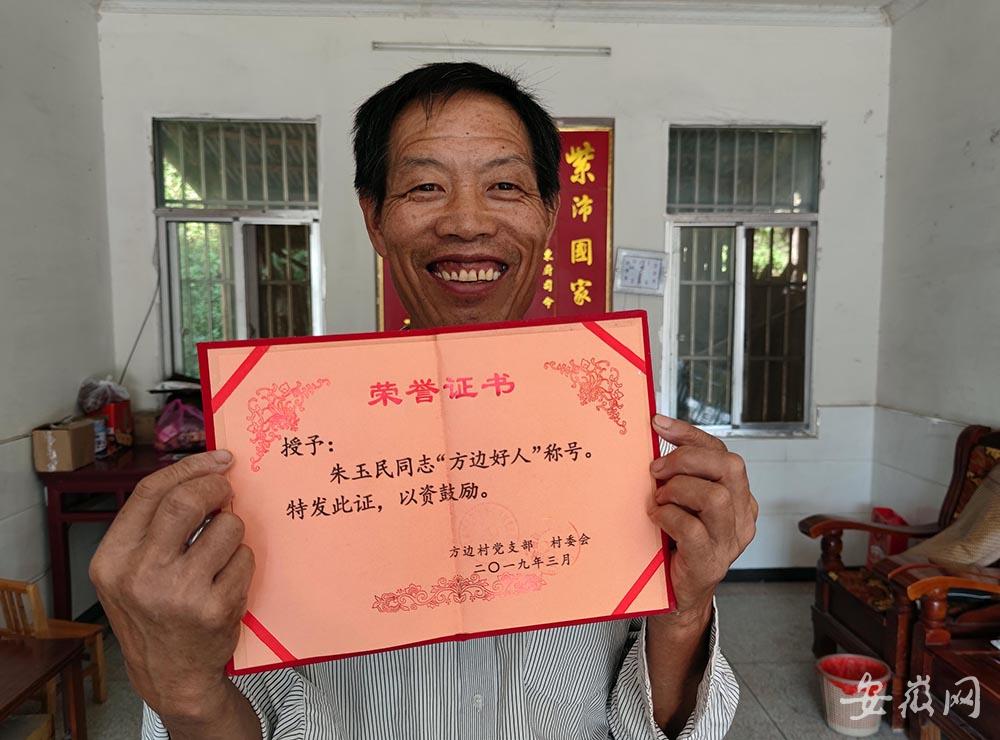 紫沛國家
東府司命
荣誉证书
授予：
朱玉民同志“方边好人”称号。
特发此证，以资鼓励。
方边村党支部 村委会
二〇一九年三月
安徽网